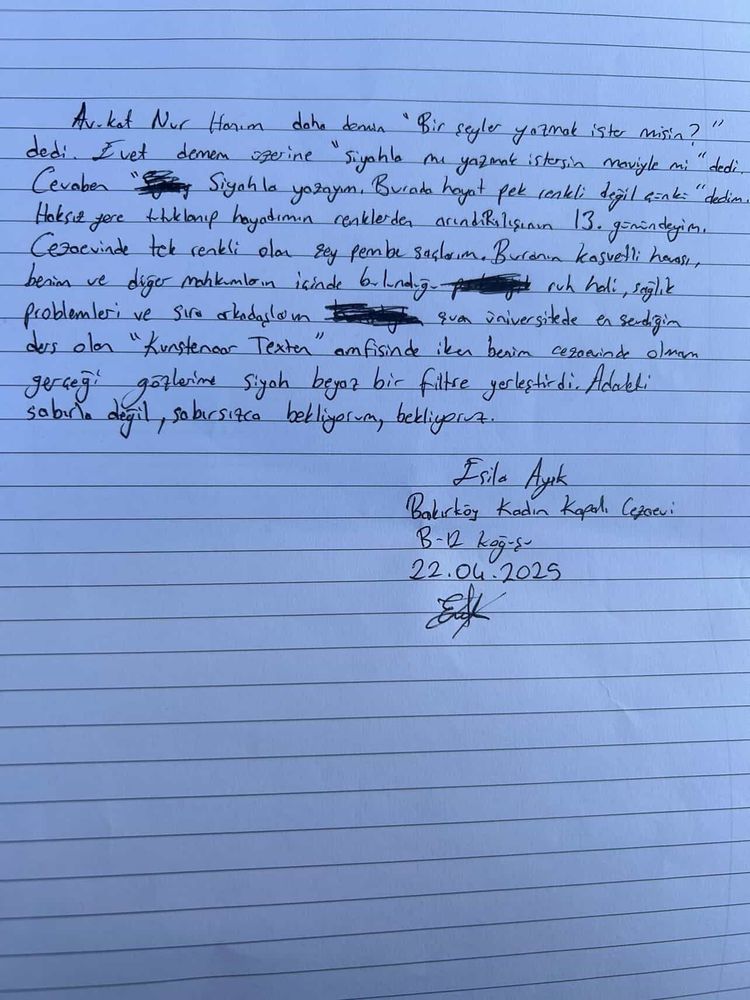 Avukat Nur Hanım daha demin "Bir şeyler yazmak ister misin?"
dedi. Evet demem üzerine "siyahla mı yazmak istersin maviyle mi" dedi.
Cevaben " Siyahla yazayım. Burada hayat pek renkli değil çünkü" dedim.
Haksız yere tutuklanıp hayatımın renklerden arındırılışının 13. günündeyim.
Cezaevinde tek renkli olan şey pembe saçlarım. Buranın kasvetli havası,
benim ve diğer mahkumların içinde bulunduğu ruh hali, sağlık
problemleri ve sıra arkadaşlarım şuan üniversitede en sevdiğim
ders olan "Kunstenaar Texten" amfisinde iken benim cezaevinde olmam
gerçeği gözlerime siyah beyaz bir filtre yerleştirdi. Adaleti
sabırla değil, sabırsızca bekliyorum, bekliyoruz.
Esila Ayık
Bakırköy Kadın Kapalı Cezaevi
B-12 Koğuşu
22.04.2025